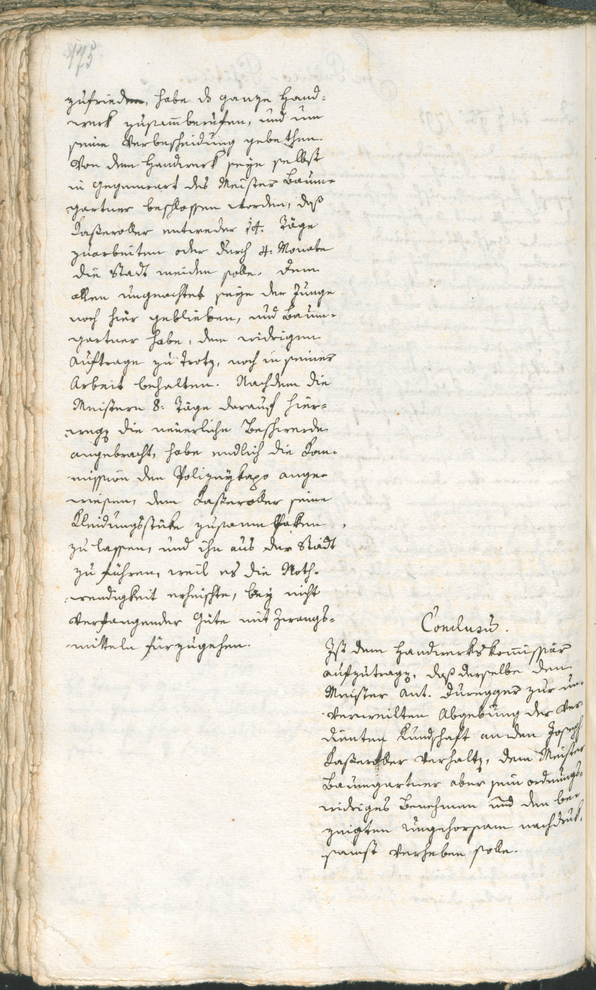 175.
zufrieden, habe ds ganze Hand-
werk zusam̄berufen, und um
seine Verbescheidung gebethen.
Von dem Handwerk seye selbst
in Gegenwart des Meister Baum-
gartner beschlossen worden, daß
Kaßeroller entweder 14. Täge
zuarbeiten oder durch 4. Monate
die Stadt meiden solle. Dem
allen ungeachtet seye der Junge
noch hier geblieben, und Baum-
gartner habe, dem widrigen
Auftrage zu Trotz, noch in seiner
Arbeit behalten. Nachdem die
Meistern 8: Täge darauf hier-
wegs die neuerliche Beschwerde
angebracht, habe endlich die Kom-
mission den Polizeykapo ange-
wiesen, dem Kaßeroller seine
Kleidungsstüke zusamm Paken
zu lassen, und ihn aus der Stadt
zu führen, weil es die Noth-
wendigkeit erheischte, bey nicht
Verfangender Güte mit Zwangs-
mitteln fürzugehen.
Conclusum.
Ist dem Handwerkskommissär
aufzutragen, daß derselbe den
Meister Ant. Duregger zur un-
verweilten Abgebung der ver-
dienten Kundschaft an den Joseph
Kaßeroller verhalte, dem Meister
Baumgartner aber sein ordnungs-
widriges Benehmen und den be-
zeigten Ungehorsam nachdruk-
samst verheben solle.